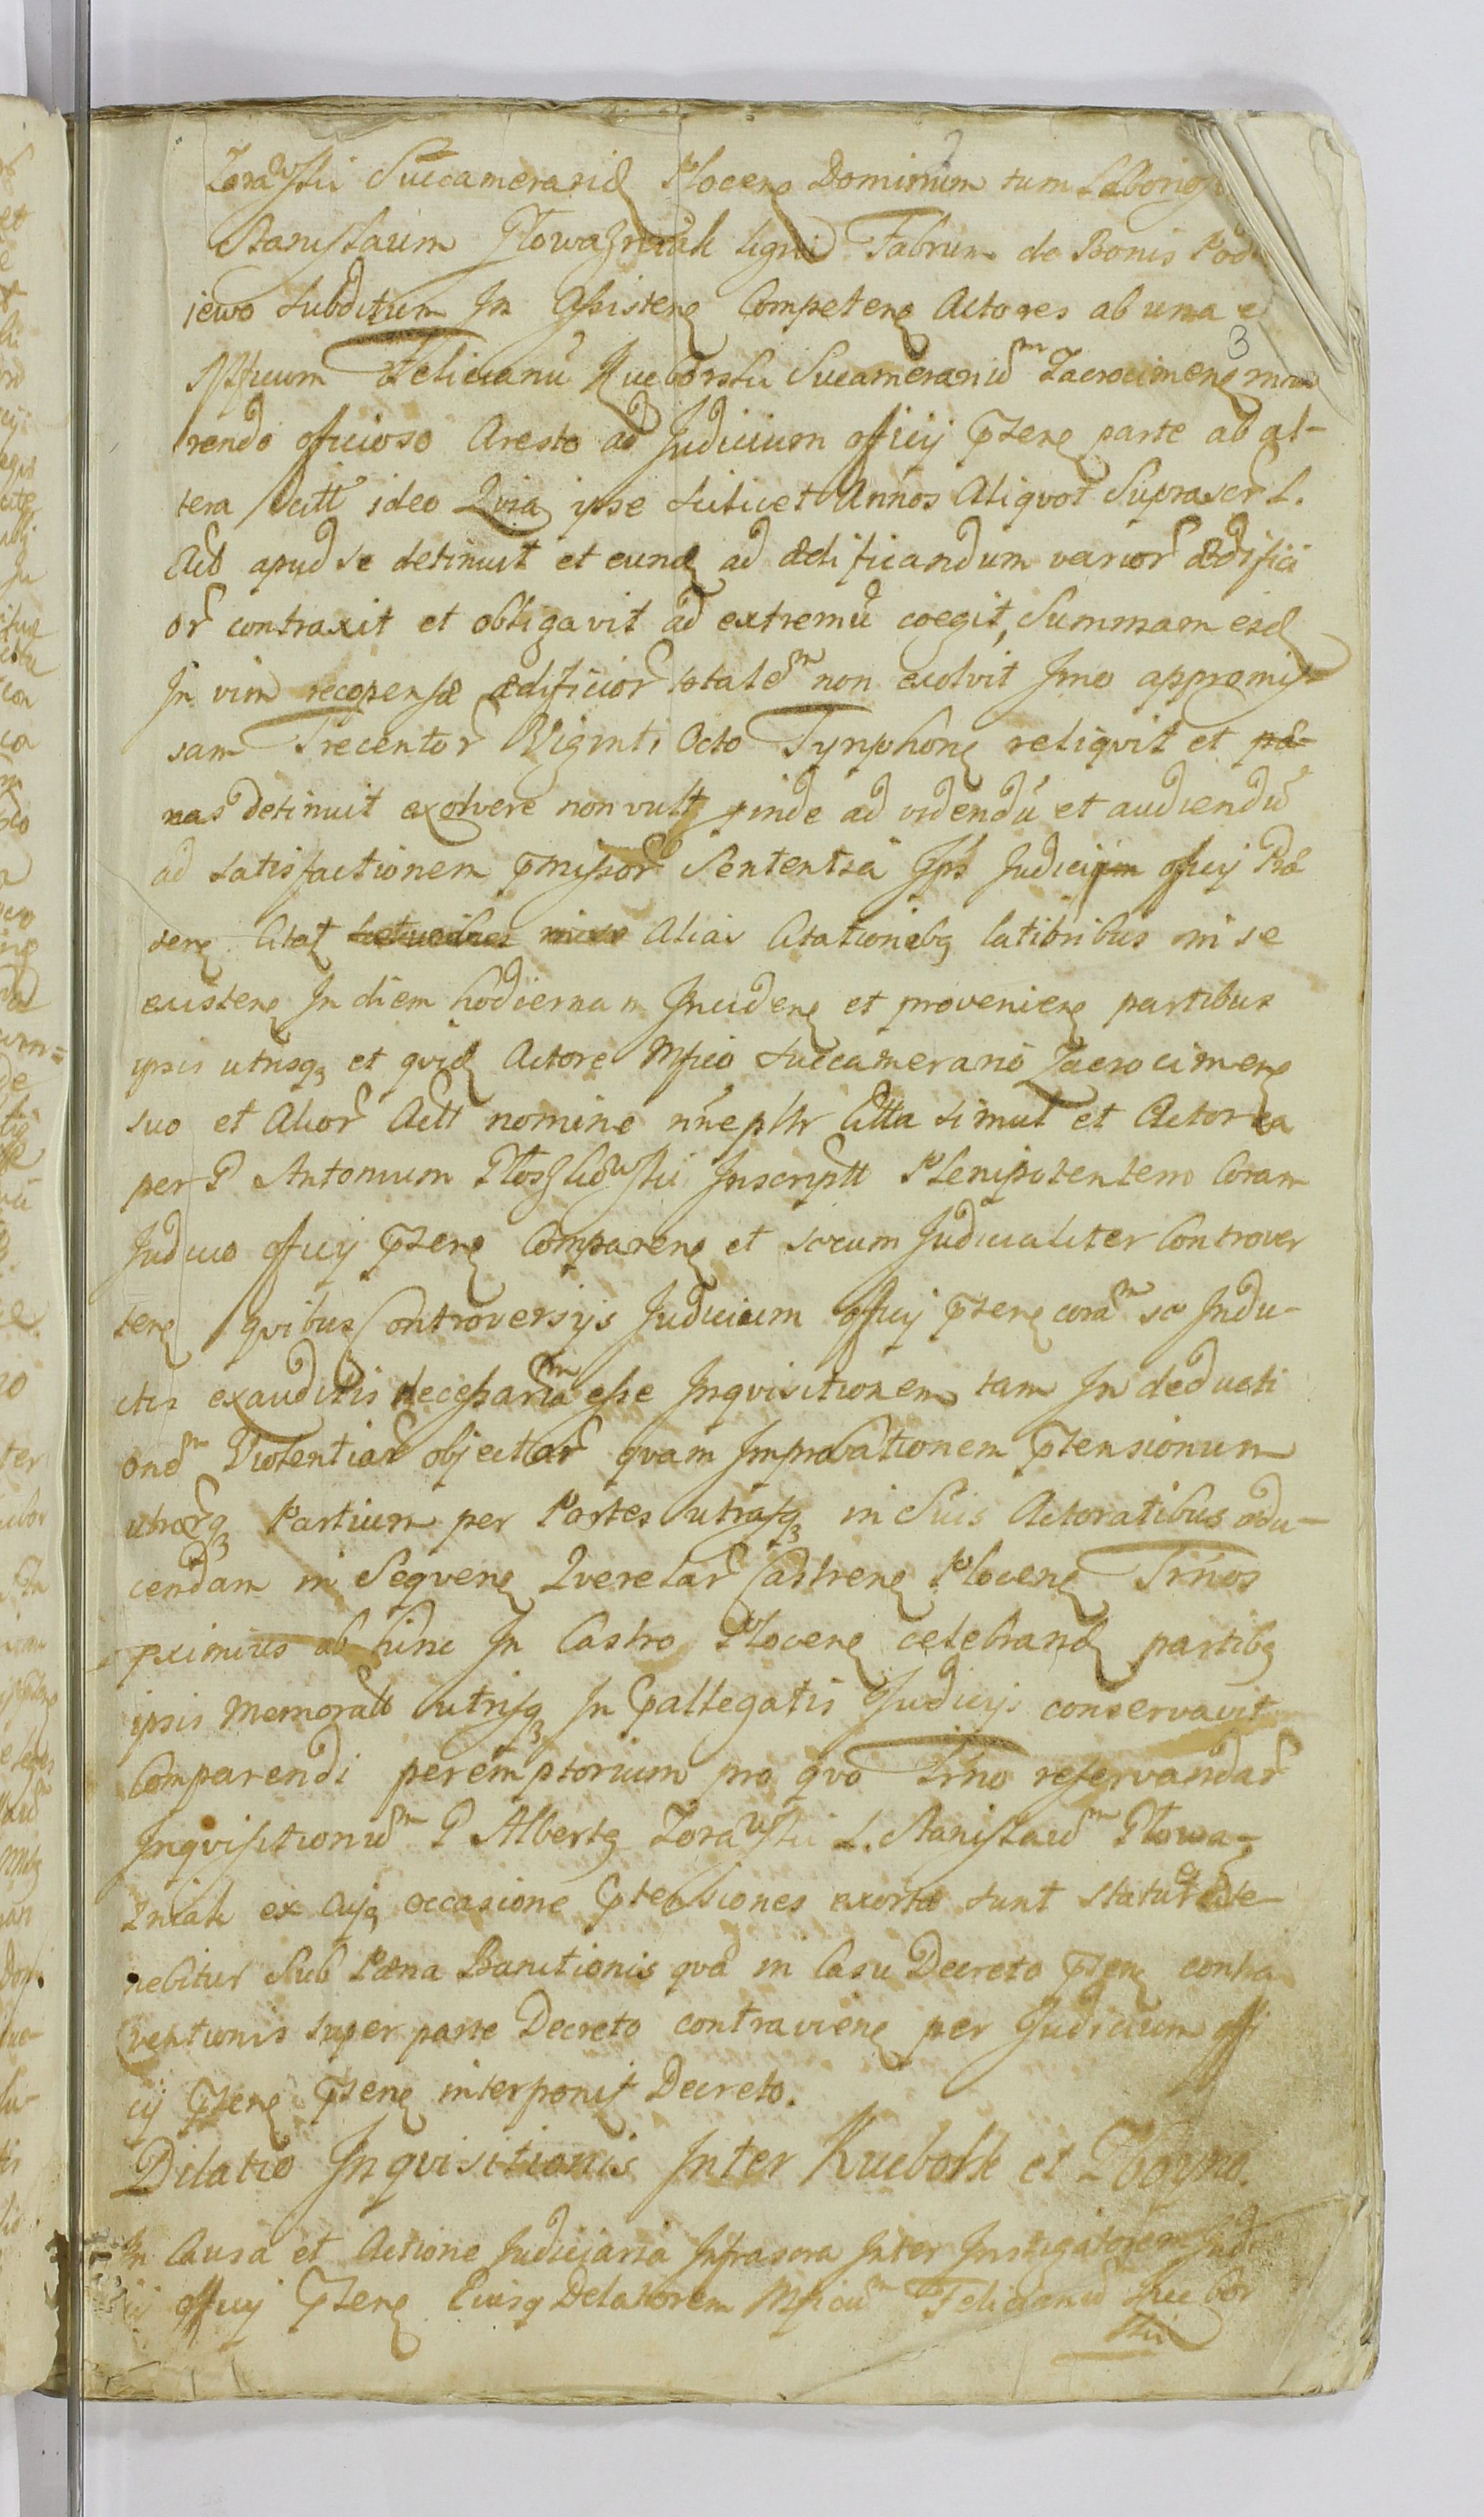 Zorawski Succamerarid Plocen Dominum tum Laborios
Stanislaum Płowazniak ligni Fabrum de Bonis Pod
iewo subditum In Assisten Competen Actores ab una e
3
Mficum Felicianũ Kucborski Succamerariũm Zacrocimen
rendo officioso Aresto ad Judicium officij pten parte ab al-
tera Citt ideo Quia ipse scilicet Annos Aliquot Suprascr L.
Act apud se detinuit et eund ad ædificandum varior ædifici
or contraxit et obligavit ad extremũ coegit, Summam eid
In vim recopensæ ædificior totalem non exolvit Imo appromis-
sam Trecentor Viginti Octo Tynphon reliqvit et pæ-
nas detinuit exolvere non vult pinde ad videndũ et audiendũ
ad satisfactionem pmissor Sententiã Ipst Judicium officij Præ
sen Citat Alias Citationibq latibribus in se
existen In diem hodiernam Inciden et provenien partibus
ipsis utrisq et qvid Actore Mfico Succamerario Zacrocimen
suo et Alior Actt nomine nñe pltr Citta simul et Actorea
per P Antonium Płoszkowski Inscriptt Plenipotentem Coram
Judicio officij pten Comparen et sorum Judicialiter Controver
ten qvibus Controversijs Judicium officij pten coram se Indu-
ctis exauditis Necessariam esse Inqvisitionem tam In deducti
onem Violentiar objectar qvam Improbationem ptensionum
utrorq Partium per Partes utrasq in Suis Actoratibus edu-
cendam in Seqven Qverelar Castren Plocen Trnos
pximius ab hinc In Castro Plocen celebrand partibq
ipsis Memoratt utrisq In pallegatis Judicijs conservavit
Comparendi peremptorium pro qvo Trno reservandar
Inqvisitionum P Albertq Zorawski L. Stanislaum Płowa-
zniak ex cujq occasione ptensiones exortæ sunt statuere te-
nebitur Sub Pæna Banitionis qvã in Casu Decreto pten contra
ventionis super parte Decreto contravien per Judicium offi
cij pten pten interponit Decreto.
Dilatio Inqvisitionis Inter Kucborsk et Zboyno.
In Causa et Actione Judiciaria Infrascra Inter Instigatorem Judi
ij officij pten Eiusq Delatorem Mficum Felicianũ Kucbor
ski